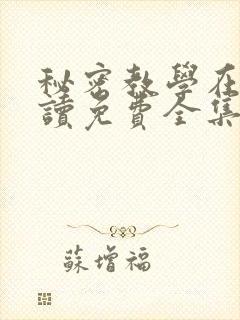 秘密教學在
讀免費全集
蘇增福